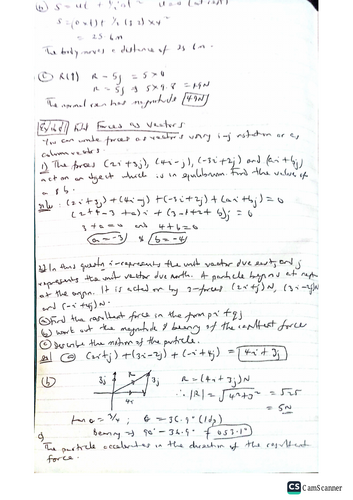 (b) S = ut + ½at² u = 0 (at rest)
S = (0×4) + ½ (3.2) × 4²
= 25.6m
The body moves a distance of 25.6m.
(c) R(↑) R - 5g = 5×0
R = 5g = 5×9.8 = 49N
The normal reaction has magnitude 49N
Forces as vectors
You can write forces as vectors using i-j notation or as
column vectors.
1) The forces (2i+3j), (4i-j), (-3i+2j) and (ai+bj)
act on an object which is in equilibrium. Find the value of
a & b.
(2i+3j) + (4i-j) + (-3i+2j) + (ai+bj) = 0
(2+4-3+a)i + (3-1+2+b)j = 0
3+a = 0 and 4+b = 0
a = -3 & b = -4
In this question i represents the unit vector due east, and j
represents the unit vector due north. A particle begins at rest
at the origin. It is acted on by 3 forces (2i+j)N, (3i-2j)N
and (-i+4j)N.
(a) Find the resultant force in the form pi+qj
(b) work out the magnitude & bearing of the resultant force
(c) Describe the motion of the particle.
(a) (2i+j) + (3i-2j) + (-i+4j) = 4i+3j
(b) 3j R 3j R = (4i+3j)N
4i ∴ |R| = √4²+3² = √25
= 5N
tan θ = 3/4 ; θ = 36.9° (1dp)
bearing = 90° - 36.9° = 053.1°
c) The particle accelerates in the direction of the resultant
force.
CS CamScanner